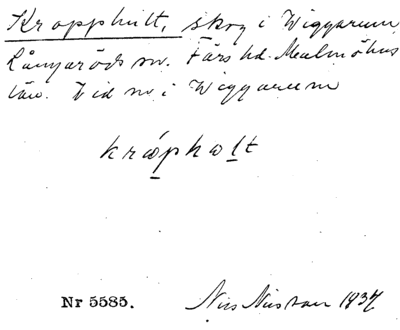 Kropphult, skog i Wiggarum
Långaröds sn. Färs hd. Malmöhus
län. Vid nr i Wiggarum
kråpholt
Nr 5585. Nils Nilsson 1937